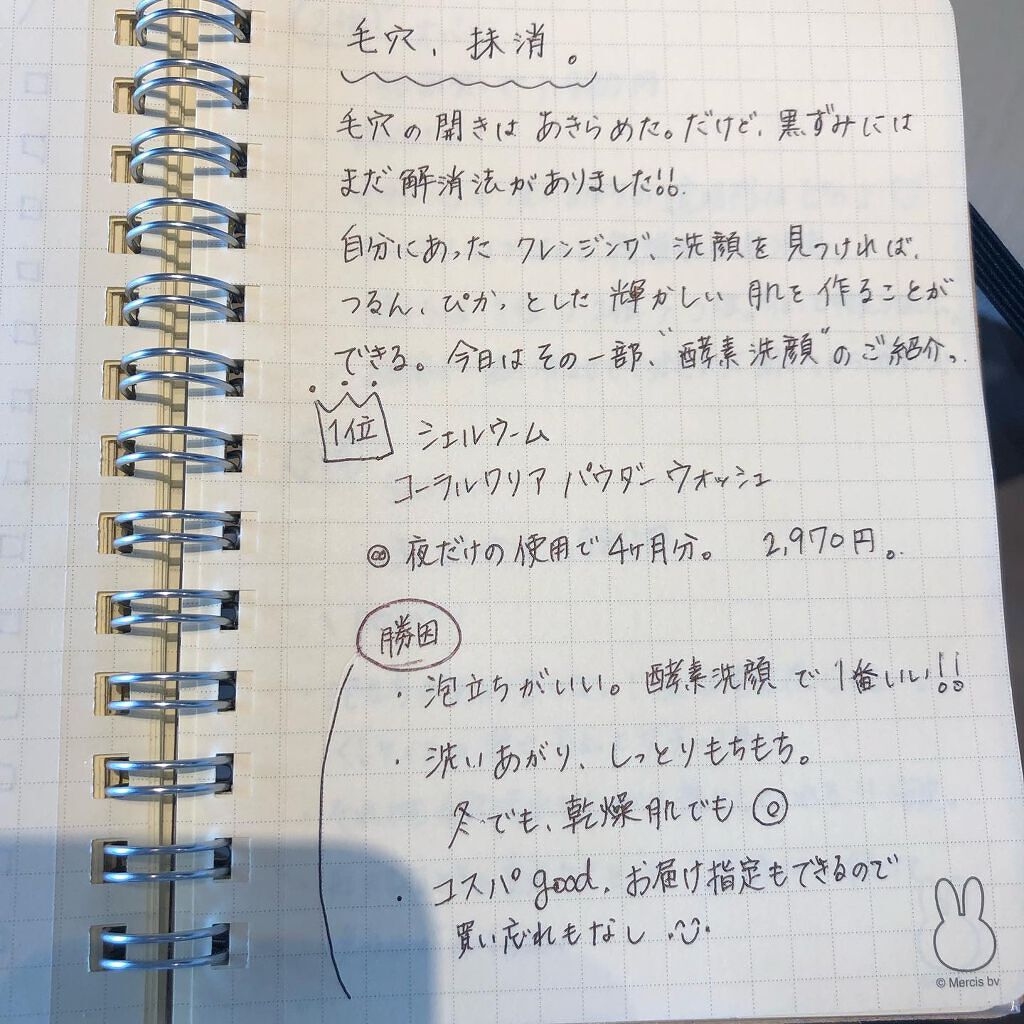 毛穴、抹消。
毛穴の開きは あきらめた。だけど、黒ずみには
まだ解消法がありました!!
自分にあった クレンジング、洗顔を見つければ、
つるん、ぴかっとした 輝かしい 肌を作ることが
できる。今日はその一部、"酵素洗顔"のご紹介。
1位 シェルウーム
コーラルクリア パウダーウォッシュ
◎ 夜だけの使用で4ヶ月分。 2,970円。
勝因
・泡立ちがいい。酵素洗顔で1番いい!!
・洗いあがり、しっとりもちもち。
冬でも、乾燥肌でも ◎
・コスパgood. お届け指定もできるので
買い忘れもなし
© Mercis bv